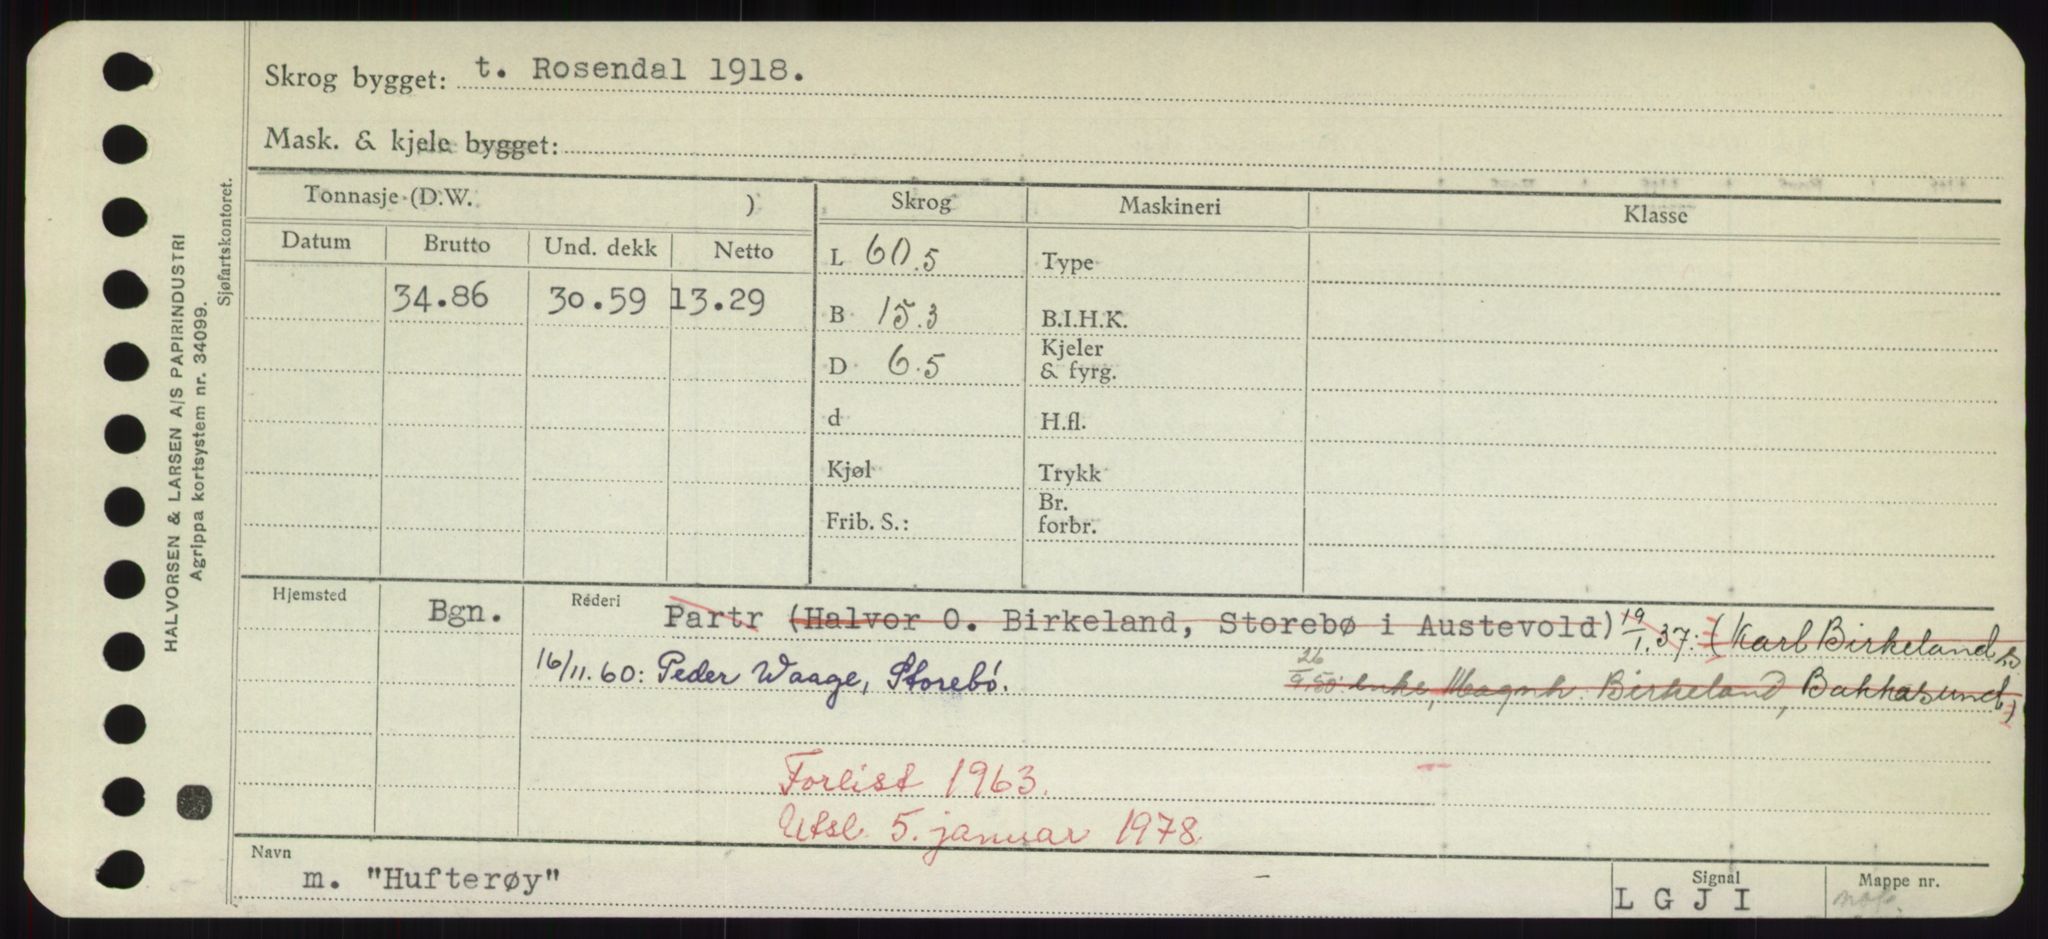 Skrog bygget: t. Rosendal 1918.
Mask. & kjele bygget:
HALVORSEN & LARSEN A/S PAPIRINDUSTRI
Agrippa kortsystem nr. 34099.
Sjøfartskontoret.
Tonnasje (D.W. ) Skrog Maskineri Klasse
Datum Brutto Und. dekk Netto
34.86 30.59 13.29
L 60.5 Type
B 15.3 B.I.H.K.
D 6.5 Kjeler & fyrg.
d H.fl.
Kjøl Trykk
Frib. S.: Br. forbr.
Hjemsted Bgn. Rederi Partr (Halvor O. Birkeland, Storebø i Austevold) 19/1.37: (Karl Birkelands
16/11.60: Peder Waage, Storebø. 26/9.50: enke, Magnh. Birkeland, Bakkasund)
Forlist 1963.
Utsl. 5. januar 1978
Navn m. "Hufterøy"
Signal L G J I
Mappe nr.